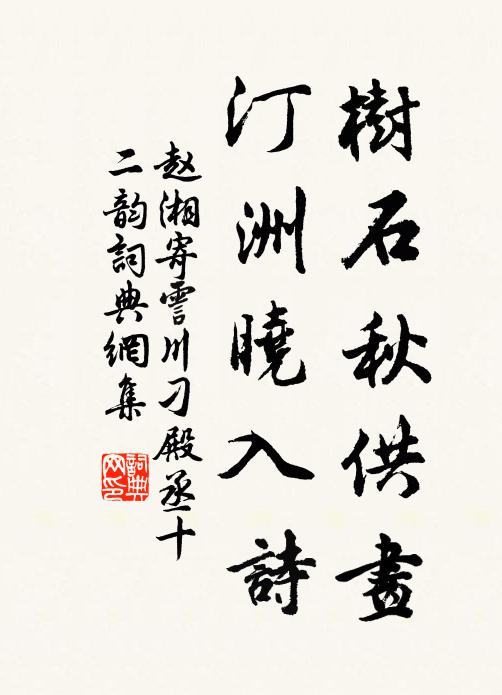 樹石秋供畫
汀洲曉入詩
赵湘寄霅川刁殿丞十
二韵詞典網集
詞典
网印